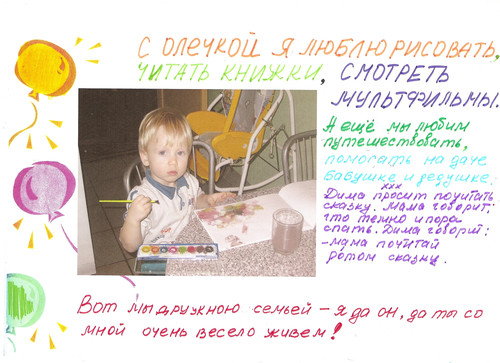 С ОЛЕЧКОЙ Я ЛЮБЛЮ РИСОВАТЬ,
ЧИТАТЬ КНИЖКИ, СМОТРЕТЬ
МУЛЬТФИЛЬМЫ.
А ещё мы любим
путешествовать,
помогать на даче
бабушке и дедушке.
xxx
Дима просит почитать
сказку. Мама говорит,
что темно и пора
спать. Дима говорит:
-мама почитай
ротом сказку.
Вот мы дружною семьей – я да он, да ты со
мной очень весело живем!